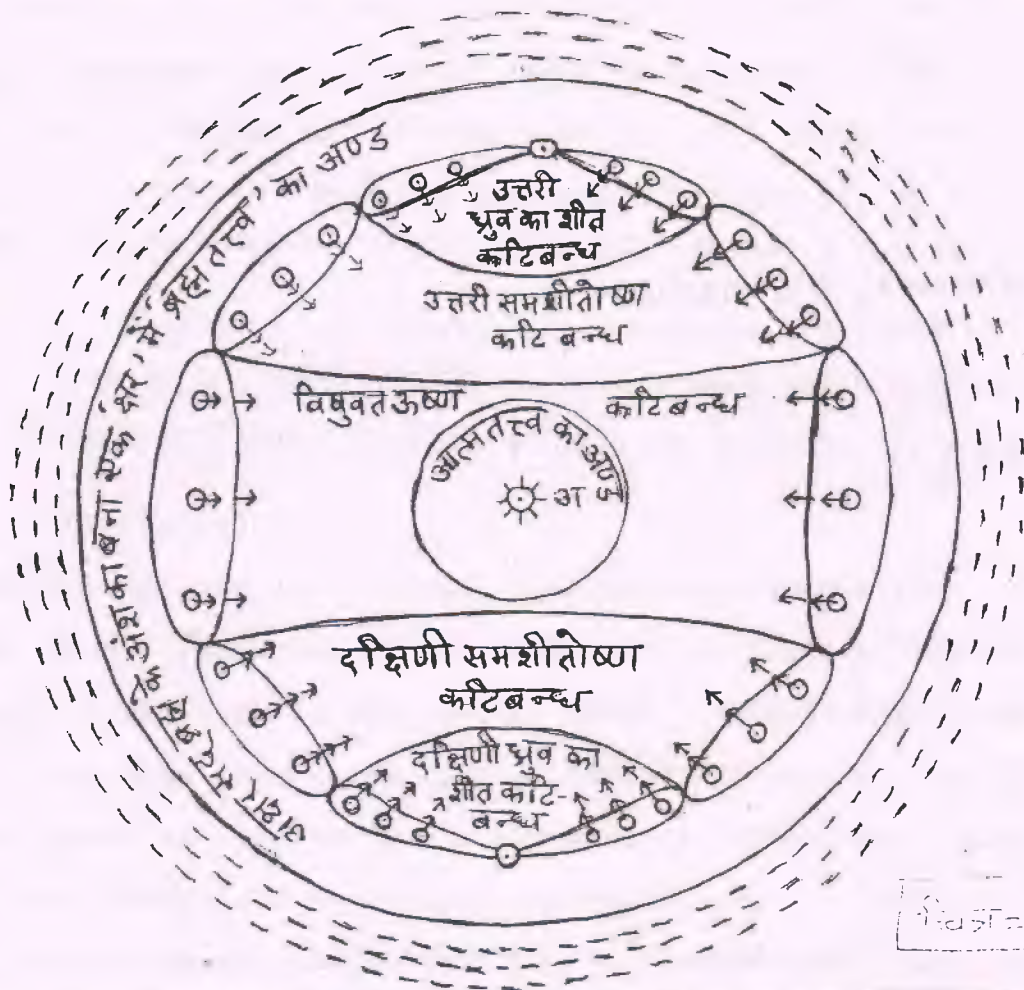 अक्षर सद् ब्रह्म के अंश का बना एक 'क्षर' में 'ब्रह्म तत्त्व' का अण्ड
उत्तरी
ध्रुव का शीत
कटिबन्ध
उत्तरी समशीतोष्ण
कटि बन्ध
विषुवत ऊष्ण कटिबन्ध
आत्म तत्त्व का अण्ड
अ
दक्षिणी समशीतोष्ण
कटिबन्ध
दक्षिणी ध्रुव का
शीत कटि-
बन्ध